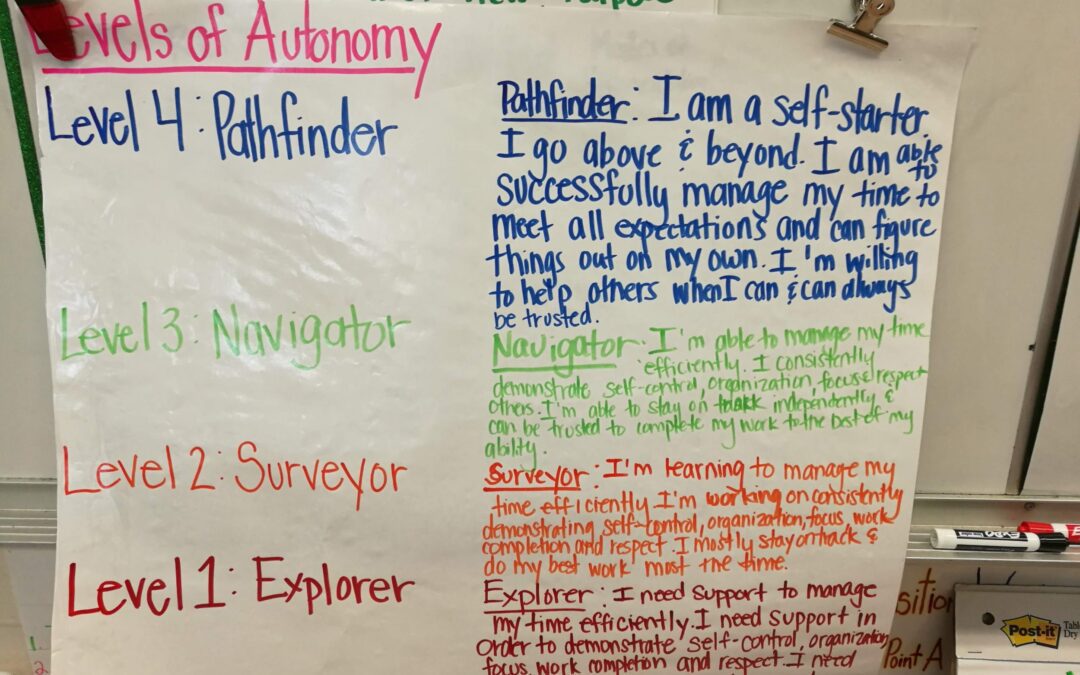 New Purpose
Levels of Autonomy
Level 4: Pathfinder
Level 3: Navigator
Level 2: Surveyor
Level 1: Explorer
Pathfinder: I am a self-starter.
I go above & beyond. I am able to
successfully manage my time to
meet all expectations and can figure
things out on my own. I'm willing
to help others when I can & can always
be trusted.
Navigator: I'm able to manage my time
efficiently. I consistently
demonstrate self-control, organization, focus & respect
others. I'm able to stay on task independently &
can be trusted to complete my work to the best of my
ability.
Surveyor: I'm learning to manage my
time efficiently. I'm working on consistently
demonstrating self-control, organization, focus, work
completion and respect. I mostly stay on track &
do my best work most the time.
Explorer: I need support to manage
my time efficiently. I need support in
order to demonstrate self-control, organization,
focus, work completion and respect. I need
EXPO
Post-it
Dry
sition
Point A
1.
2